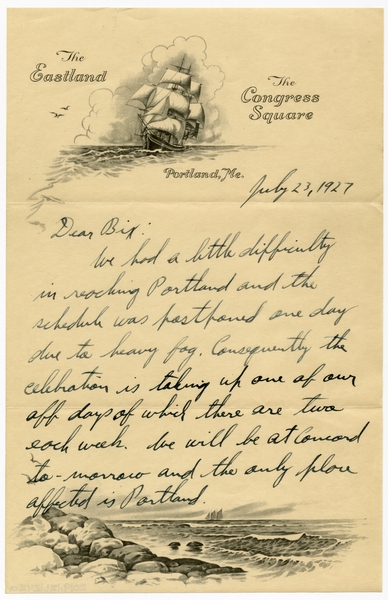 The
Eastland
The
Congress
Square
Portland, Me.
July 23, 1927
Dear Bix:
We had a little difficulty
in reaching Portland and the
schedule was postponed one day
due to heavy fog. Consequently the
celebration is taking up one of our
off days of which there are two
each week. We will be at Concord
to-morrow and the only place
affected is Portland.